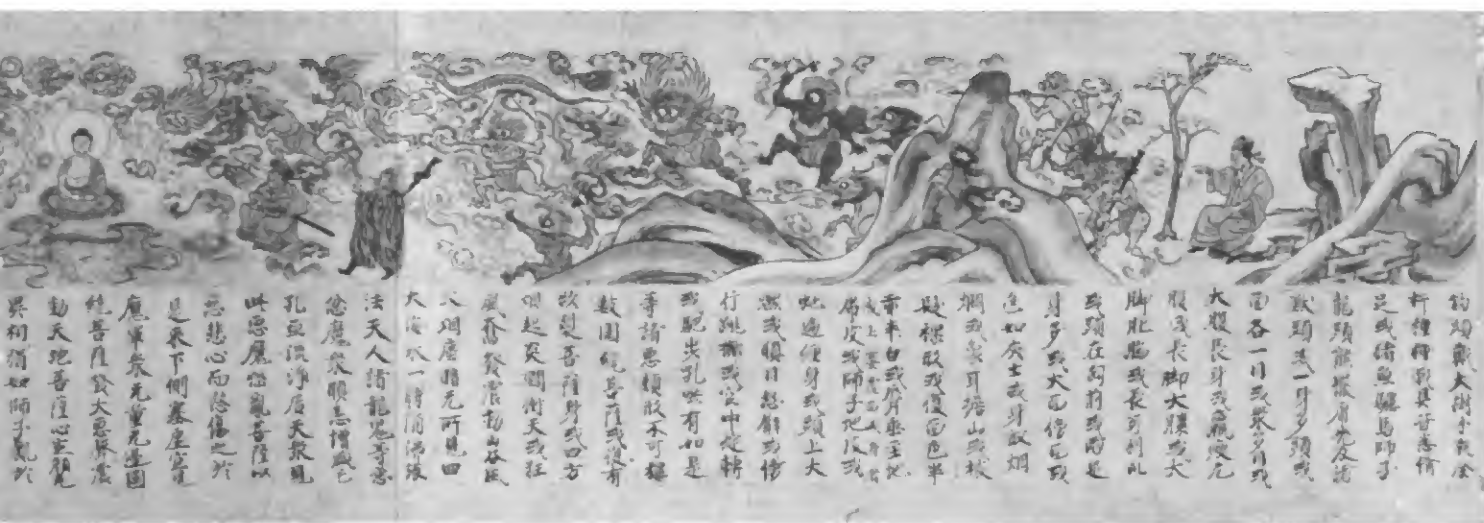 鉤斷戰大樹金
杵種種戰具皆悉備
足或猪魚驢馬師子
龍頭熊羆虎兕及諸
獸頭或一身多頭或
面各一目或衆多目或
大腹長身或羸瘦无
腹或長脚大膝或大
脚肥腨或長牙利爪
或頭在匈前或兩足
身多或大面傍面或
色如灰土或身放烟
爛或象耳擔山或被
髮裸形或復面色半
赤半白或脣垂至地
或上褰覆面或身著
虎皮或師子虵皮或
虵遍纏身或頭上火
燃或瞋目怒臂或傍
行跳擲或空中旋轉
或馳步吼唬有如是
等諸惡類形不可稱
數圍繞菩薩或復有
欲裂菩薩身或四方
烟起炎爛衝天或狂
風奮發震動山谷風
火烟塵暗无所見四
大海水一時涌沸護
法天人諸龍鬼等悉
忿魔衆瞋恚增盛毛
孔血流淨居天衆見
此惡魔惱亂菩薩以
慈悲心而愍傷之於
是來下側塞虛空見
魔軍衆无量无邊圍
繞菩薩發大惡聲震
動天地菩薩心定顏
異相猶如師子處於